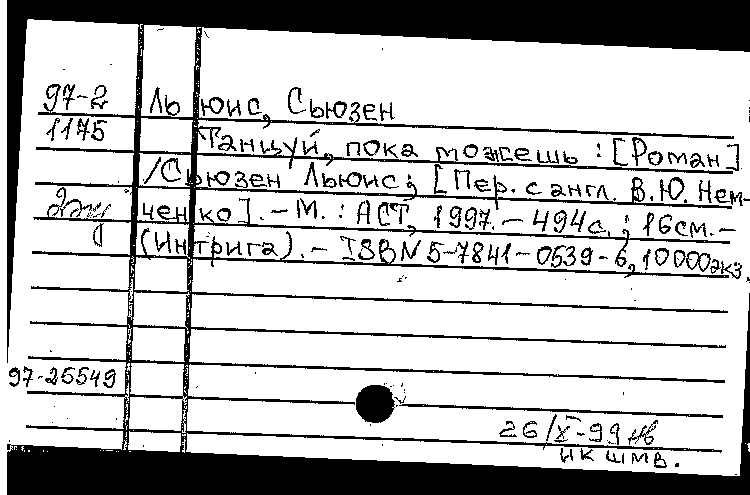 97-2 Льюис, Сьюзен
1175 Танцуй, пока можешь : [Роман]
/Сьюзен Льюис; [Пер. с англ. В.Ю. Нем-
ченко]. - М. : АСТ, 1997. - 494с. ; 16см. -
(Интрига). - ISBN 5-7841-0539-6, 10000экз.
97-25549
26/X-99
ик шмв.